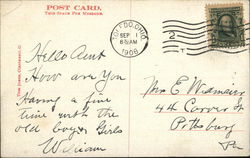 POST CARD.
THIS SPACE FOR MESSAGE.
TOLEDO, OHIO
SEP 1
6 30 AM
1908
2
Hello Aunt
How are you
Having a fine
time with the
old boys & Girls
William
Mrs E
44 Carver St
Pittsburg
Pa